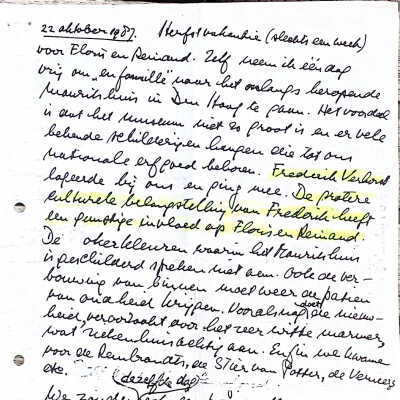 22 oktober 1987. Herfstvakantie (slechts een week)
voor Floris en Reinard. Zelf neem ik één dag
vrij om "en famille" naar het onlangs heropende
Mauritshuis in Den Haag te gaan. Het voordeel
is dat het museum niet zo groot is en er vele
bekende schilderijen hangen die tot ons
nationale erfgoed behoren. Frederik Verhorst
logeerde bij ons en ging mee. De grotere
culturele belangstelling van Frederik heeft
een gunstige invloed op Floris en Reinard.
De okerkleuren waarin het Mauritshuis
is geschilderd spreken niet aan. Ook de ver-
bouwing van binnen moet weer de patien
van oudheid krijgen. Vooralsnog doet die nieuw-
heid, veroorzaakt door het zeer witte marmer,
wat ziekenhuisachtig aan. Enfin we kwamen
voor de Rembrandts, de Stier van Potter, de Vermeers
etc. (dezelfde dag)
We